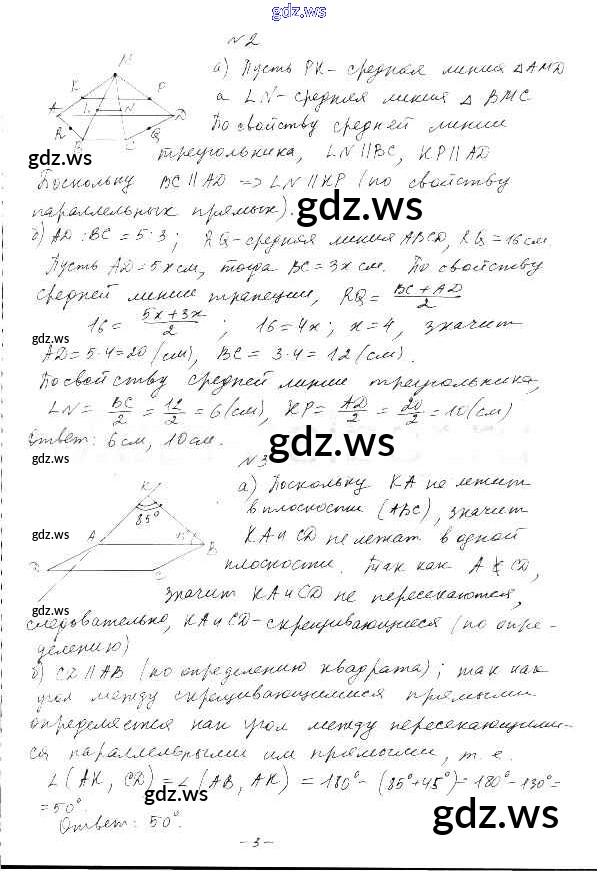 gdz.ws
№2
а) Пусть PK - средняя линия △AMD
а LN - средняя линия △ BMC
По свойству средней линии
gdz.ws
треугольника, LN || BC, KP || AD
Поскольку BC || AD => LN || KP (по свойству
параллельных прямых).
gdz.ws
б) AD : BC = 5:3; RQ - средняя линия ABCD, RQ = 16 см.
Пусть AD = 5x см, тогда BC = 3x см. По свойству
средней линии трапеции, RQ = (BC + AD)/2
gdz.ws
16 = (5x+3x)/2 ; 16 = 4x; x = 4, значит
AD = 5·4 = 20 (см), BC = 3·4 = 12 (см).
По свойству средней линии треугольника,
LN = BC/2 = 12/2 = 6 (см), KP = AD/2 = 20/2 = 10 (см)
Ответ: 6 см, 10 см.
gdz.ws
gdz.ws
№3
K
85°
A
B
C
а) Поскольку KA не лежит
в плоскости (ABC), значит
KA и CD не лежат в одной
gdz.ws
gdz.ws
плоскости. Так как A ∉ CD,
значит KA и CD не пересекаются,
gdz.ws
следовательно, KA и CD - скрещивающиеся (по опре-
делению)
б) CD || AB (по определению квадрата); так как
угол между скрещивающимися прямыми
определяется как угол между пересекающими-
ся параллельными им прямыми, т. е.
∠(AK, CD) = ∠(AB, AK) = 180° - (85°+45°) = 180° - 130° =
= 50°.
gdz.ws
gdz.ws
Ответ: 50°.
- 3 -
gdz.ws